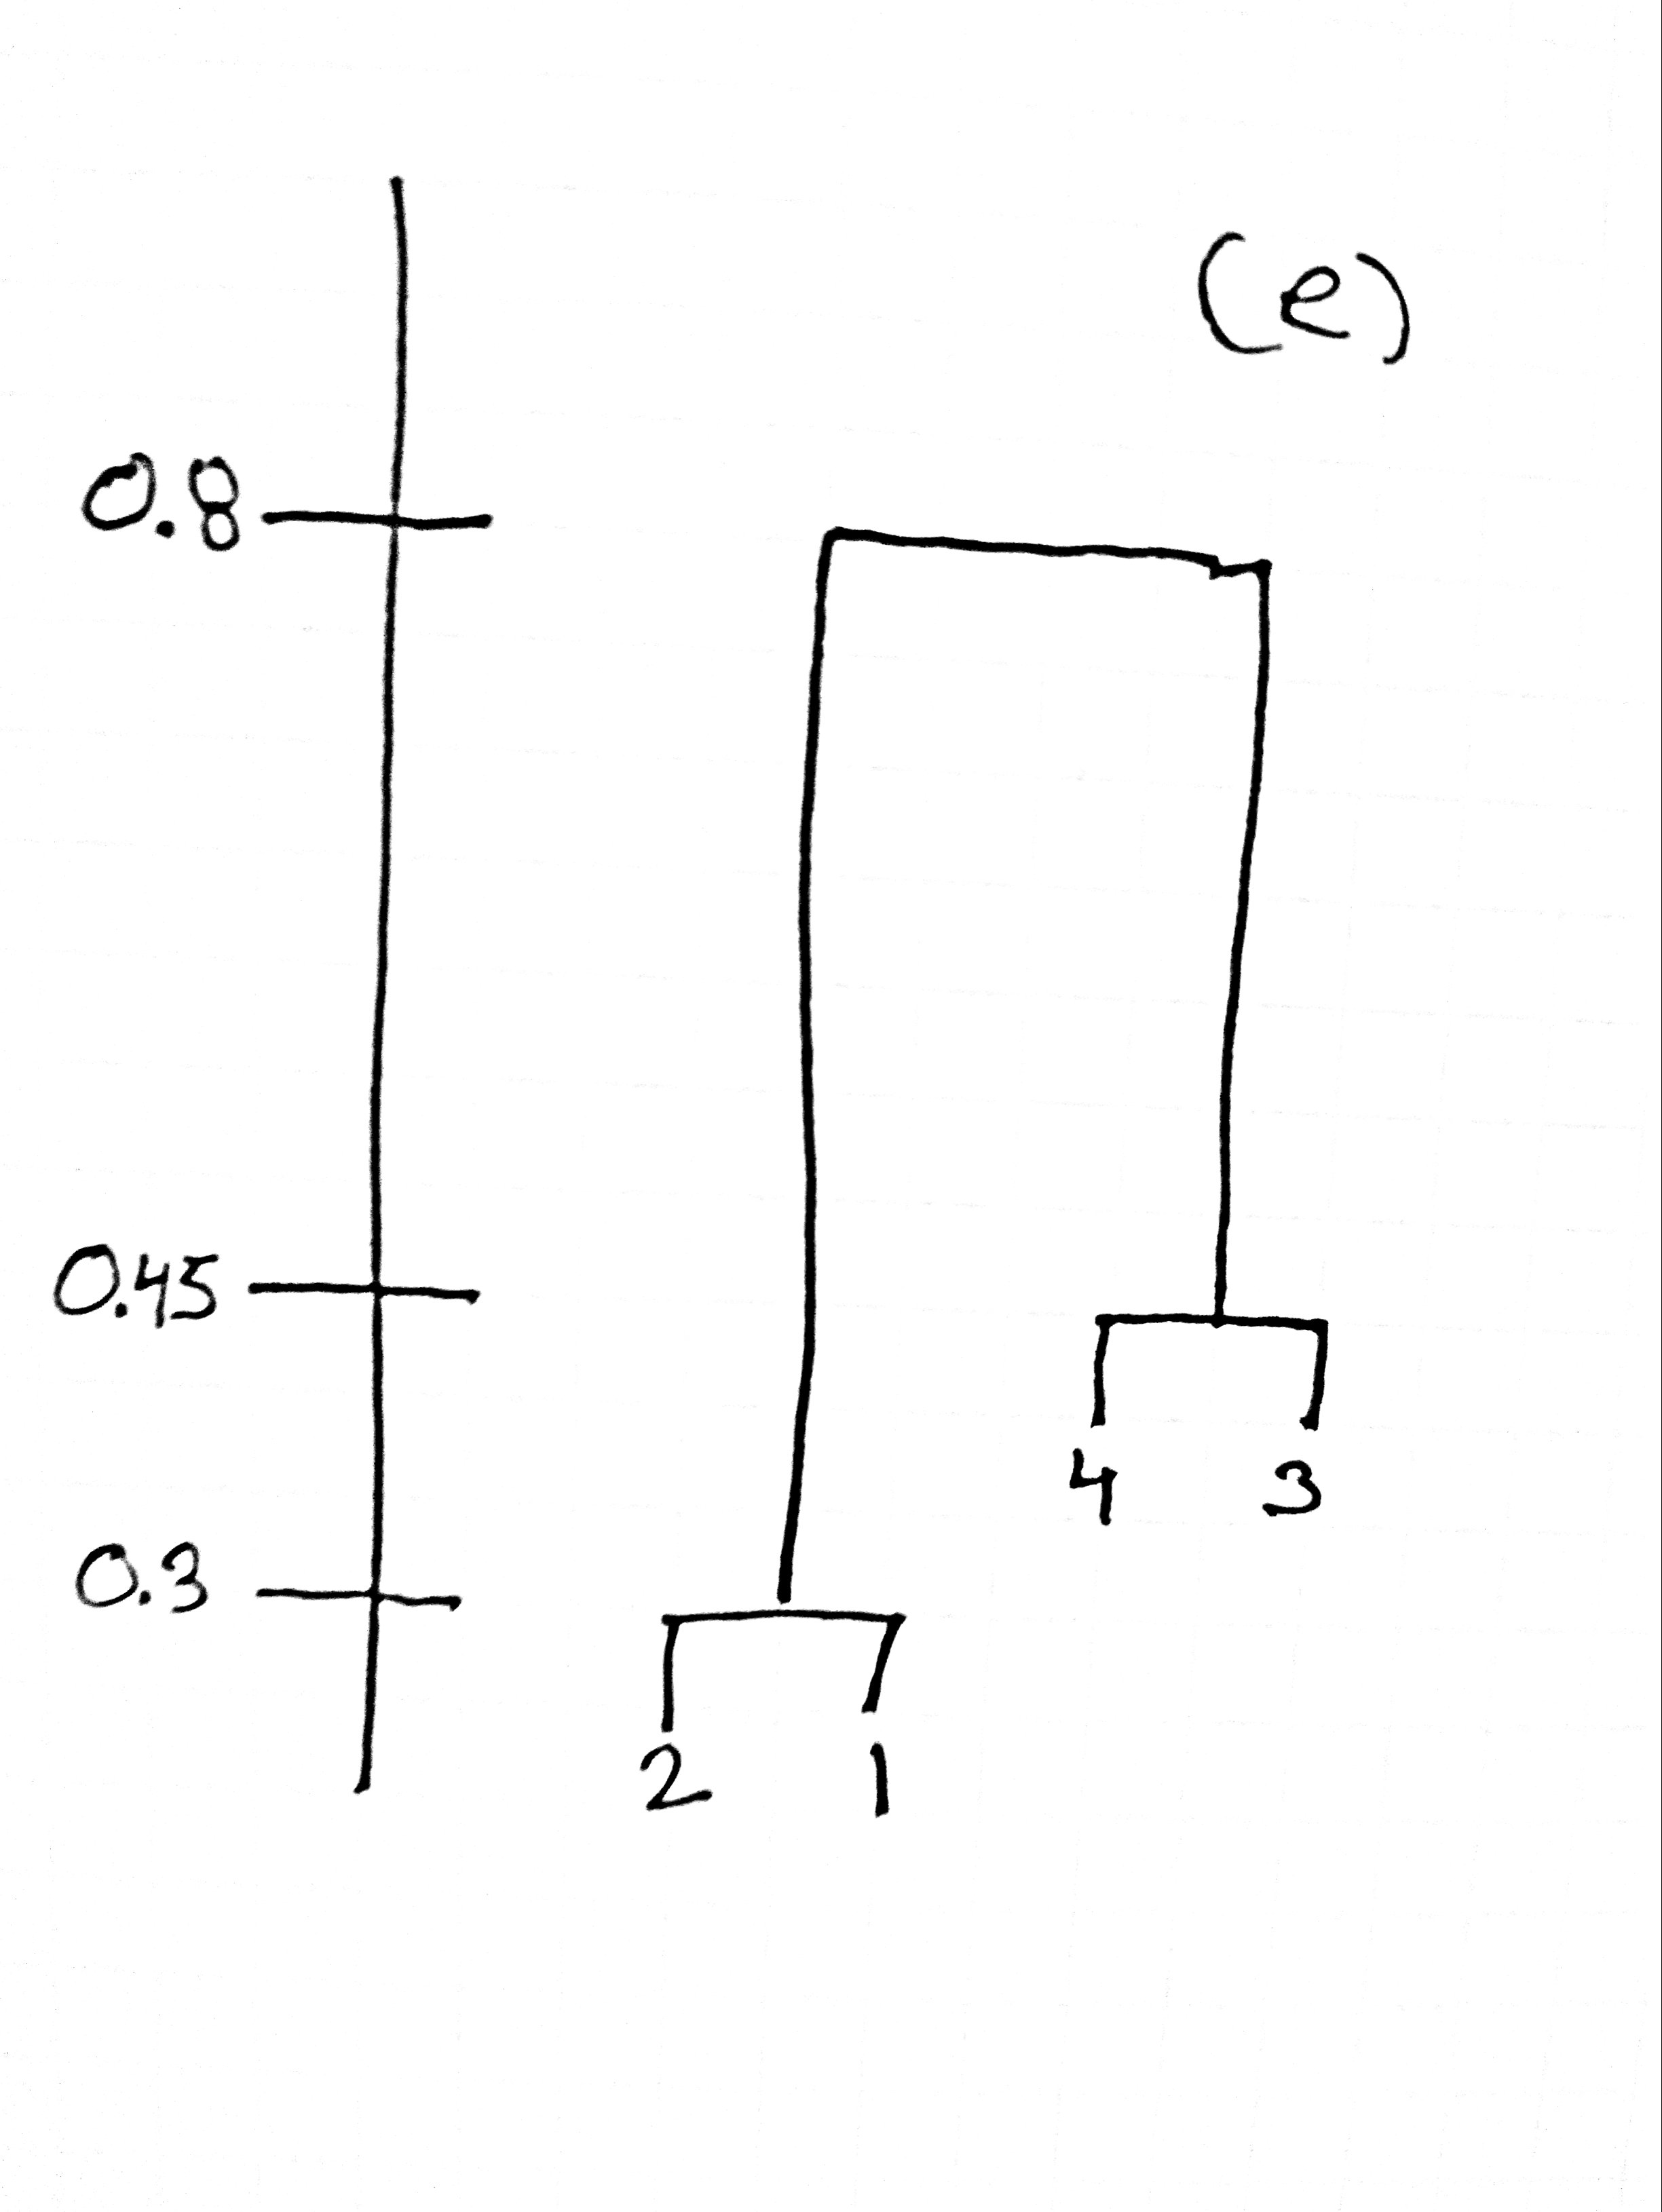 (e)
0.8
0.45
4 3
0.3
2 1